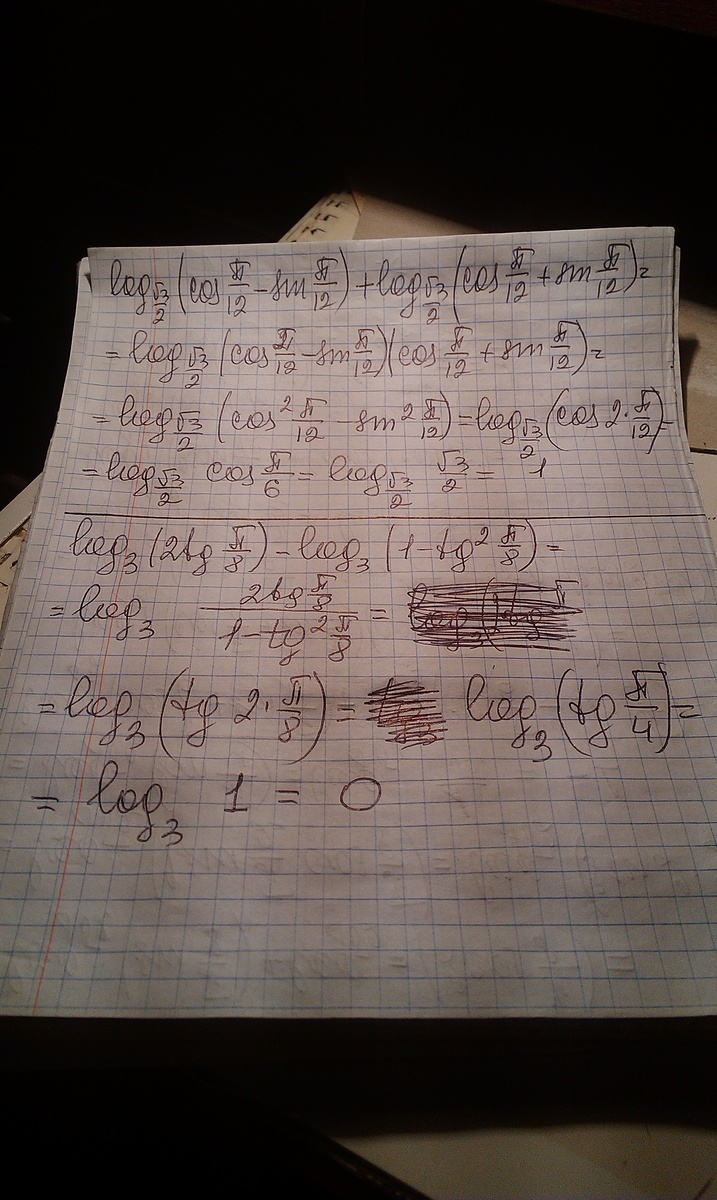 log_{√3/2} (cos π/12 - sin π/12) + log_{√3/2} (cos π/12 + sin π/12) =
= log_{√3/2} (cos π/12 - sin π/12)(cos π/12 + sin π/12) =
= log_{√3/2} (cos² π/12 - sin² π/12) = log_{√3/2} (cos 2·π/12) =
= log_{√3/2} cos π/6 = log_{√3/2} √3/2 = 1
log₃ (2tg π/8) - log₃ (1 - tg² π/8) =
= log₃ (2tg π/8)/(1 - tg² π/8) =
= log₃ (tg 2·π/8) = log₃ (tg π/4) =
= log₃ 1 = 0